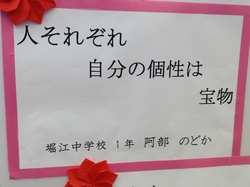 人それぞれ
自分の個性は
宝物
堀江中学校 1年 阿部 のどか